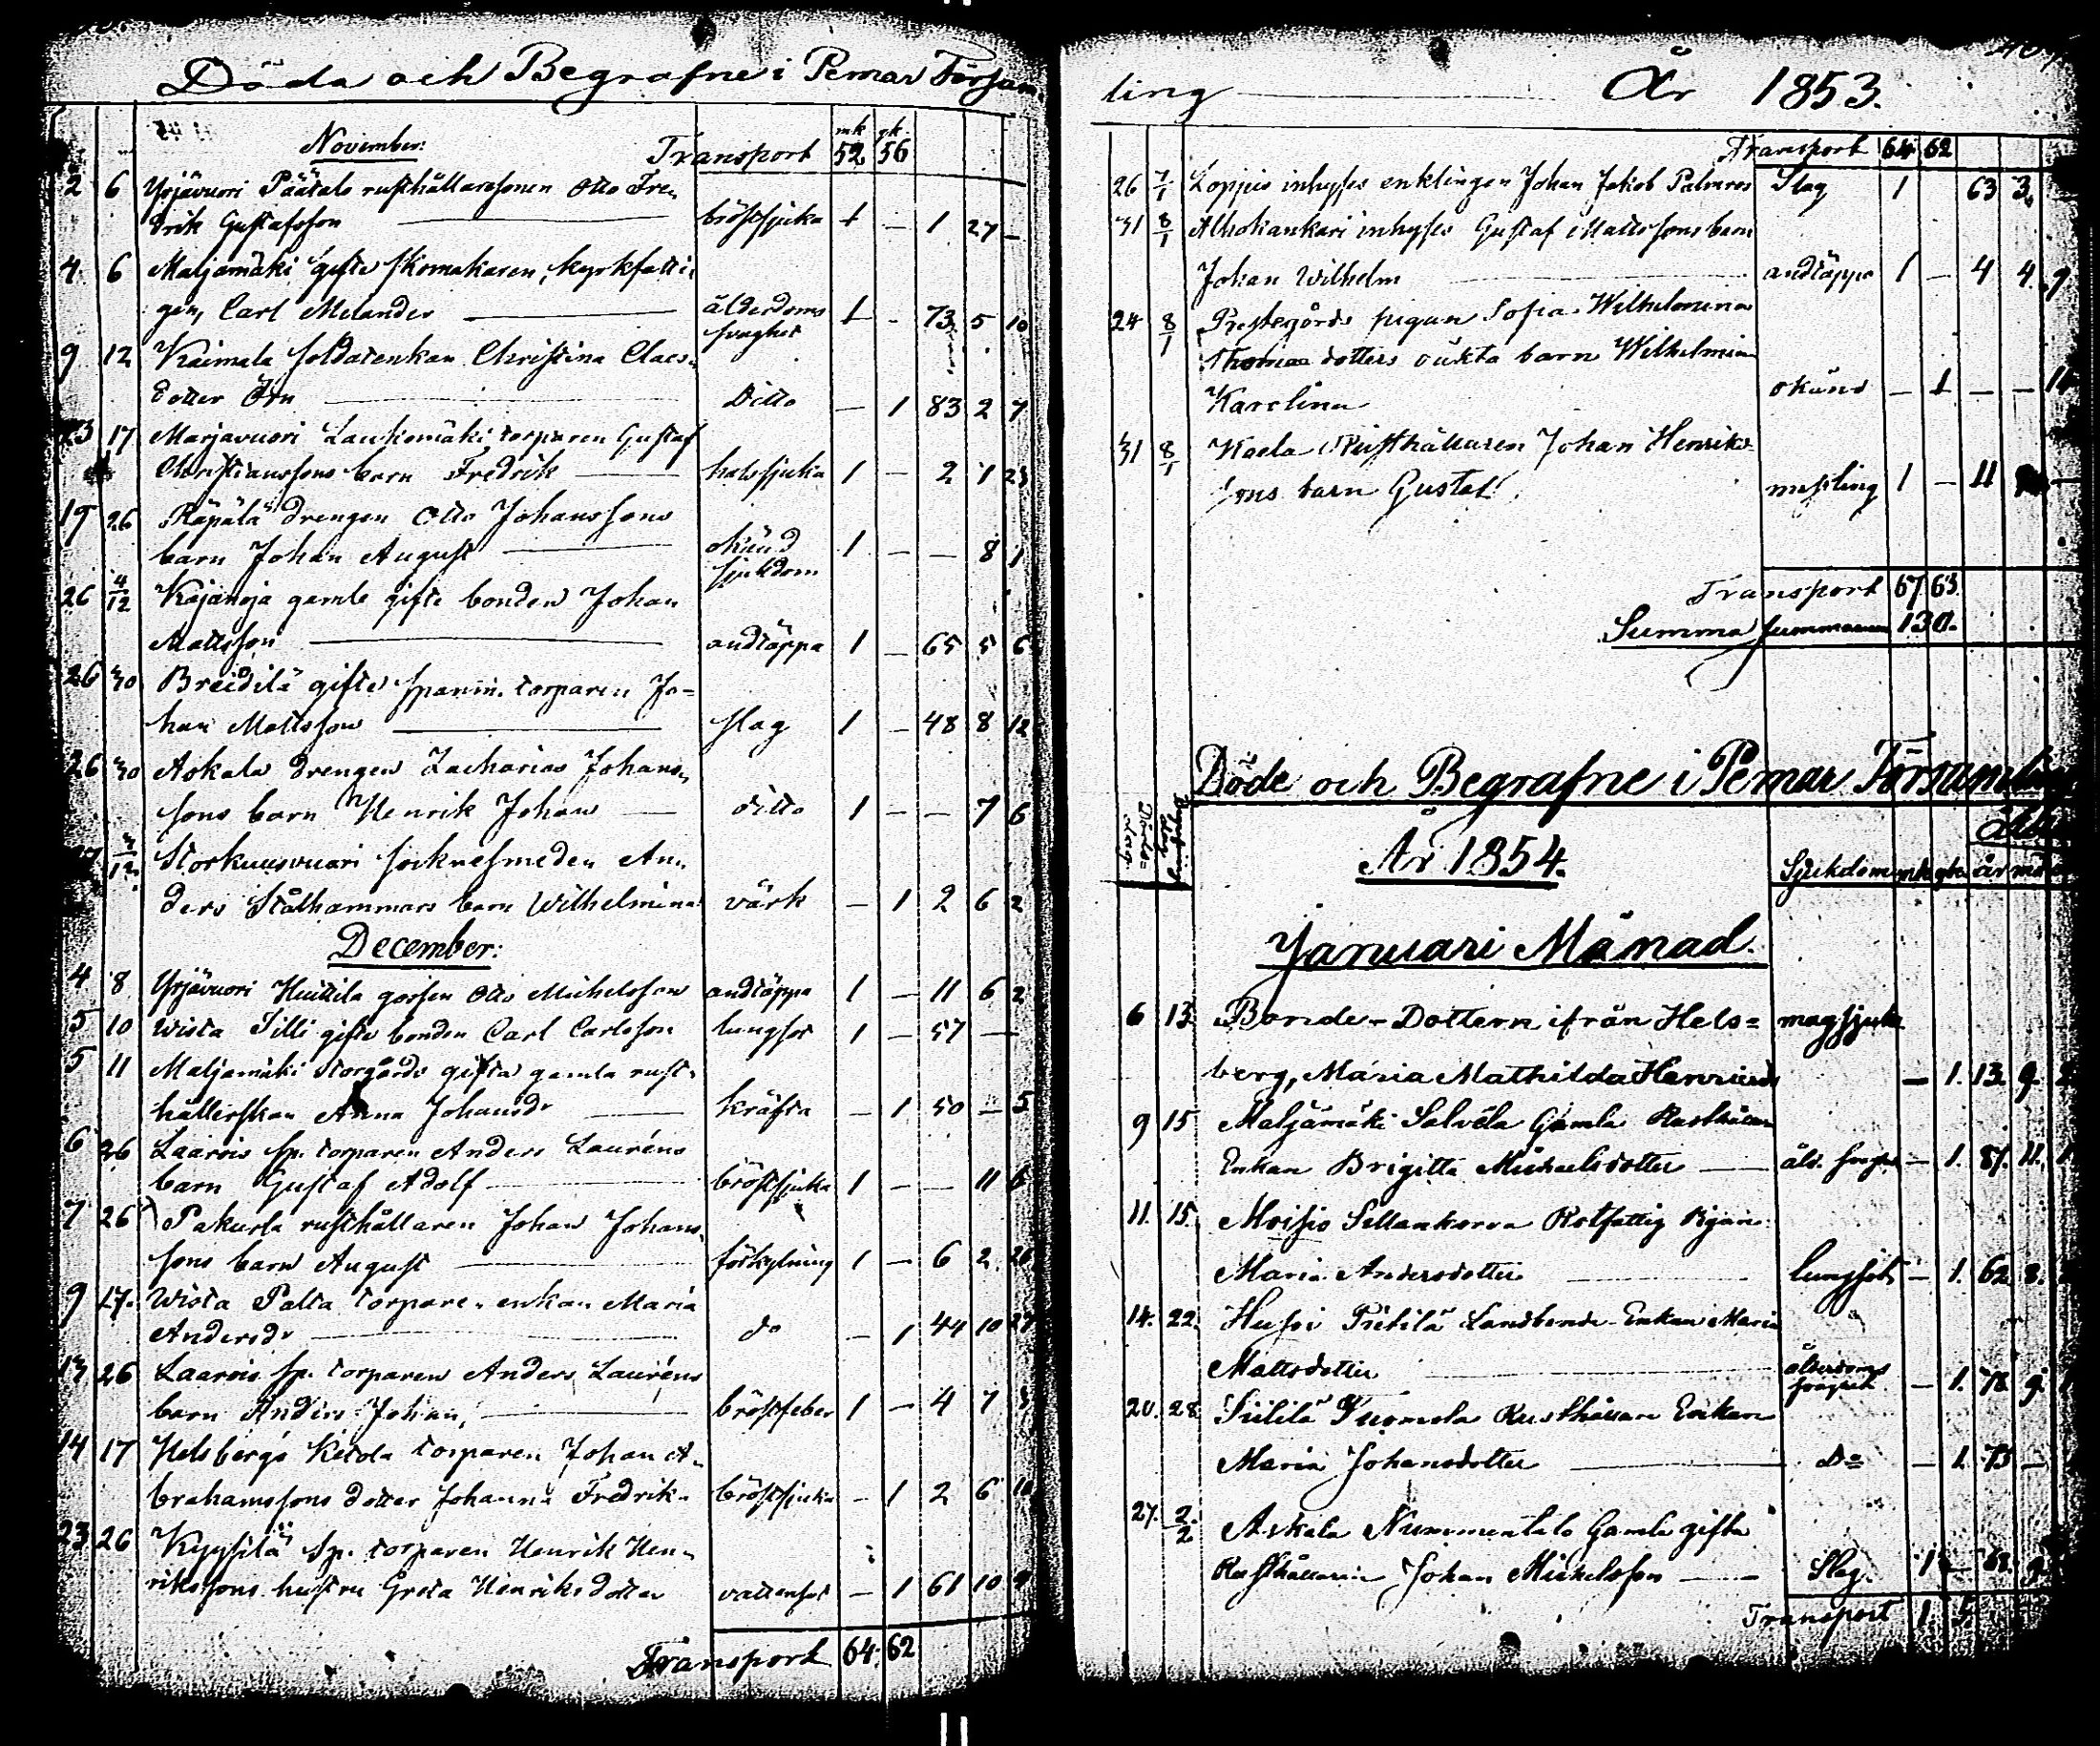 Döda och Begrafne i Pemar Försam
November:
mk qk
Transport 52 56
2 6 Yrjävuori Päätalo rusthållaresonen Otto Fre
drik Gustafsson bröstsjuka 1 — 1 27 —
4 6 Maljamäki gifte skomakaren, kyrkfatti
gen, Carl Melander ålderdoms 1 - 73 5 10
svaghet
9 12 Kaimala soldatenkan Christina Claes
dotter Örn Ditto — 1 83 2 7
23 17 Marjavuori Laukomäki torparen Gustaf
Christianssons barn Fredrik halssjuka 1 — 2 1 23
19 26 Räpälä drengen Otto Johanssons
barn Johan August okänd 1 — — 8 1
sjukdom
26 4/12 Kajanoja gamle gifte bonden Johan
Mattsson andtäppa 1 — 65 5 6
26 30 Breidilä gifte spanm. torparen Jo=
han Mattsson slag 1 — 48 8 12
26 30 Askala drengen Zacharias Johans
sons barn Henrik Johan ditto 1 — — 7 6
Storkuusvuari socknesmeden An
ders Stålhammars barn Wilhelmina värk — 1 2 6 2
December:
4 8 Yrjävuori Huttila gossen Otto Michelsson andtäppa 1 — 11 6 2
5 10 Wista Tilli gifte bonden Carl Carlsson lungsot 1 — 57 —
5 11 Maljamäki Storgårds gifta gamla rust
hållerskan Anna Johansdr kräfta — 1 50 — 5
6 26 Laarois sp. torparen Anders Lauréns
barn Gustaf Adolf bröstsjuka 1 — — 11 6
7 26 Pakurla rusthållaren Johan Johans
sons barn August förkylning 1 — 6 2 26
9 17. Wista Palta torpare enkan Maria
Andersdr do — 1 44 10 27
13 26 Laarois sp. torparen Anders Lauréns
barn Anders Johan, bröstfeber 1 — 4 7
14 17 Helsbergs Ketola torparen Johan A
brahamssons dotter Johanna Fredrika bröstsjuka — 1 2 6 18
23 26 Kyysilä sp. torparen Henrik Hen
rikssons hustru Greta Henriksdotter vattensot — 1 61 10 9
Transport 64. 62
ling År 1853.
Transport 64 62
26 7/1 Loppis inhyses enklingen Johan Jakob Palmros Slag 1 63 3
31 8/1 Alhokankari inhyses Gustaf Mattssons barn
Johan Wilhelm andtäppa 1 — 4 4 9
24 8/1 Prestegårds pigan Sofia Wilhelmina
Thomasdotters oäkta barn Wilhelmina
Karolina okänd — 1 — — 14
31 8/1 Kaela Rusthållaren Johan Henriks
sons barn Gustaf messling 1 — 11 —
Transport 67 63.
Summa summarum 130.
Döde och Begrafne i Pemar Församl
År 1854.
Sjukdom mk qk år mån
Januari Månad.
6 13 Bonde-Dottern ifrån Hels= magsjuka
berg, Maria Mathilda — 1. 13 9
9 15 Maljamäki Salvela Gamla Rusthållare
Enkan Brigitta Michaelsdotter — 1. 87. 11.
11. 15. Moisio Sellankorva Rotfattig Pigan
Maria Andersdotter lungsot — 1. 62 8.
14. 22. Huso Prihilä Landbonde Enkan Maria
Mattsdotter ålderdoms — 1. 78 9.
svaghet
20. 28 Siililä Tuomola Rusthållare Enkan
Maria Johansdotter Do — 1. 73 —
27. 2/2 Askala Nummentalo Gamle gifte
Rusthållaren Johan Michelsson Slag. 1 — 68. 9.
Transport 1. 5